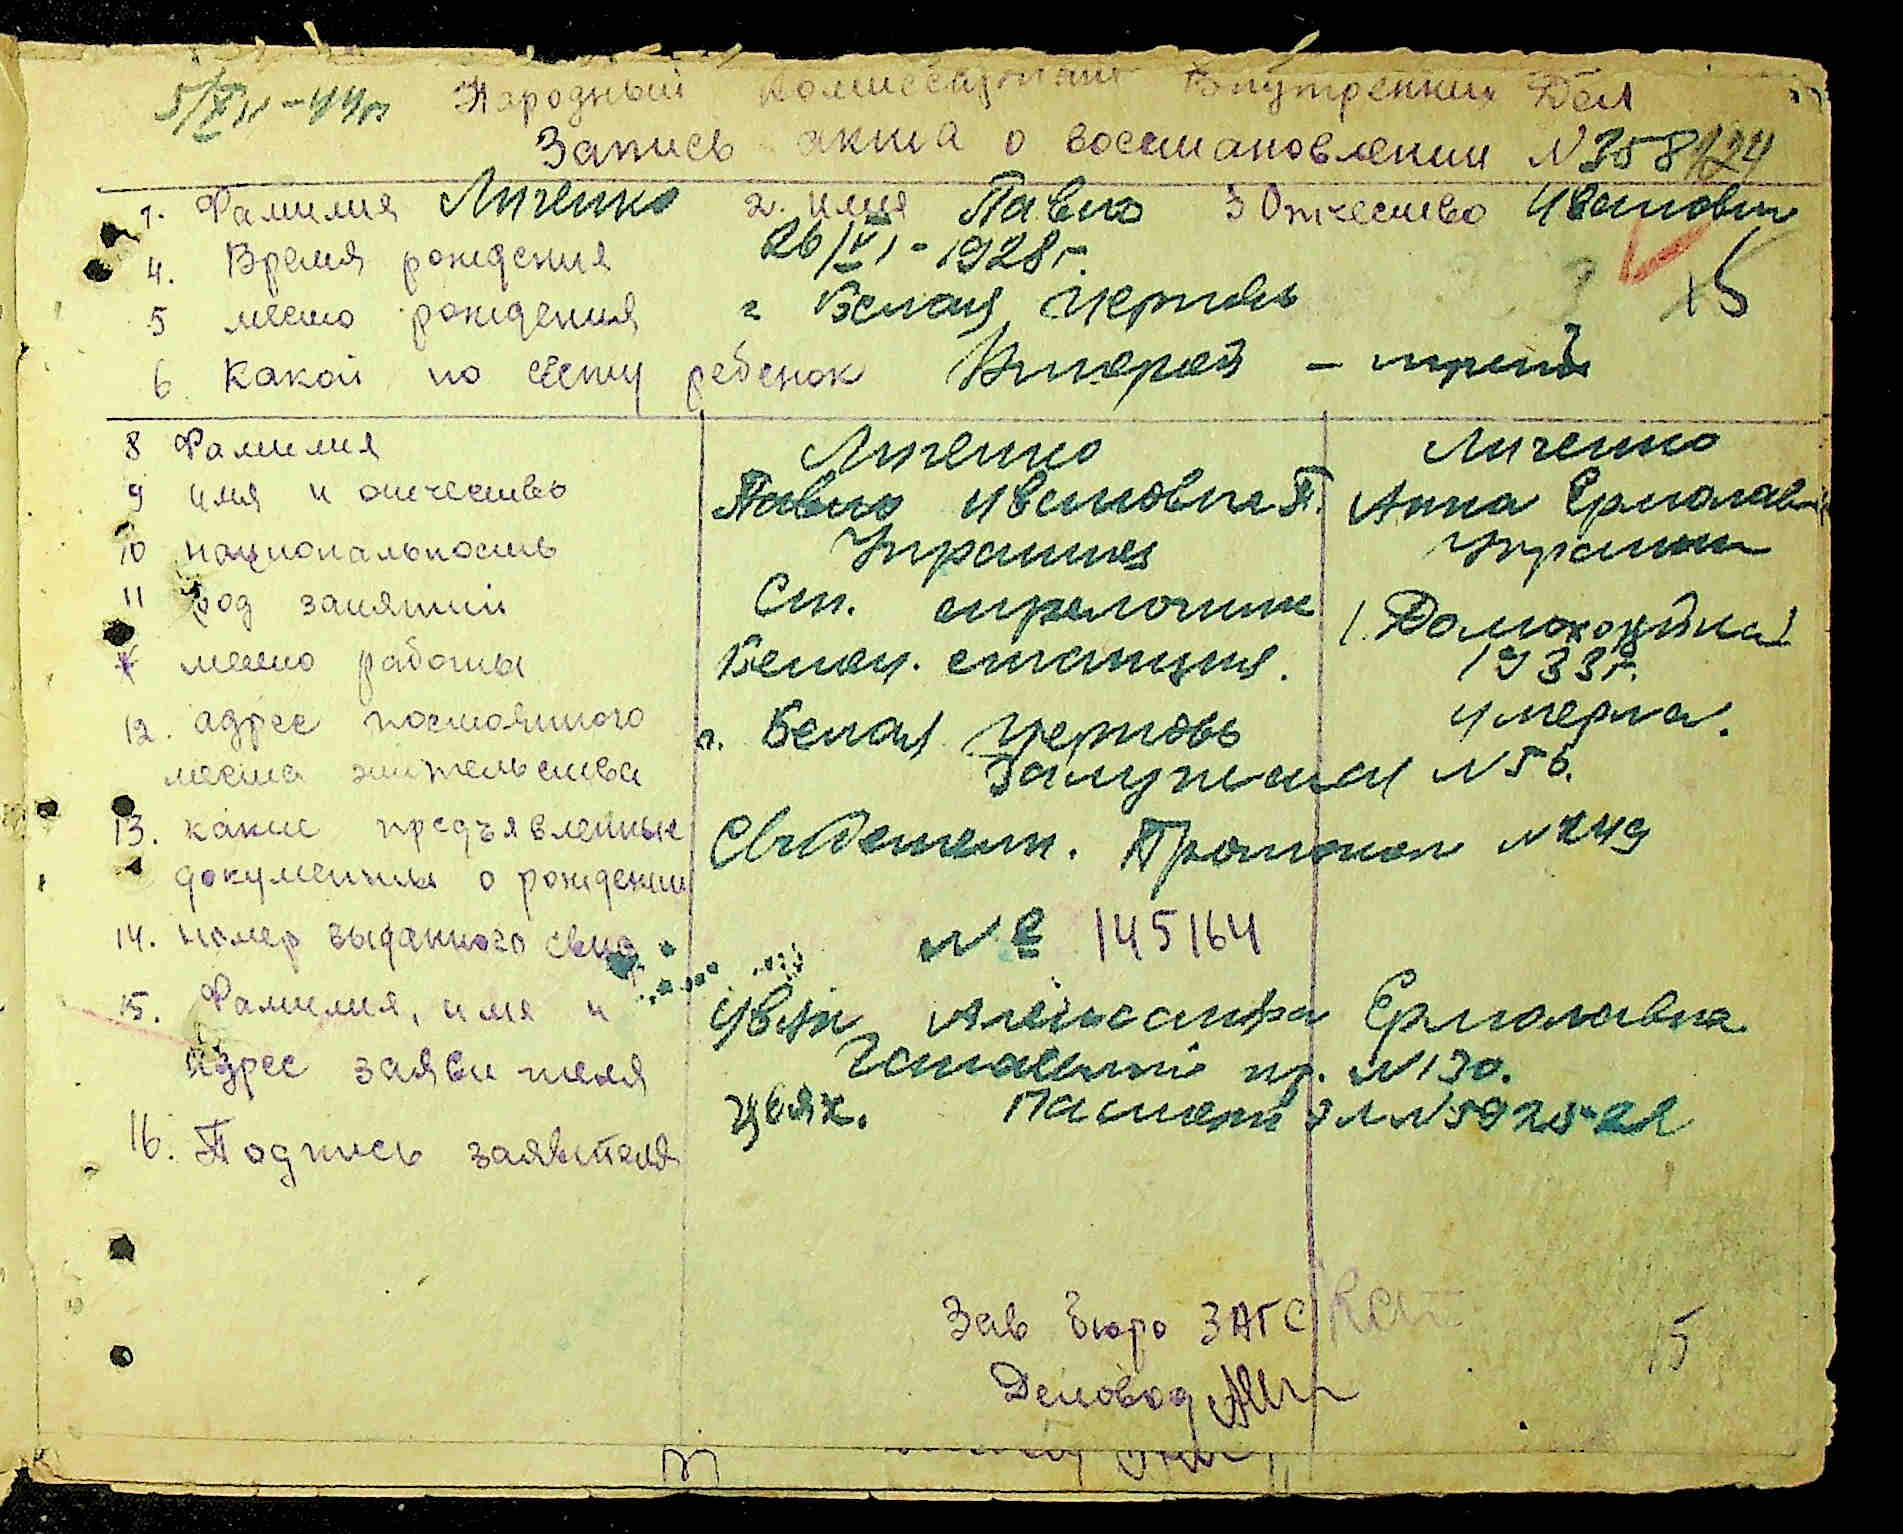 5/XII-44г Народный Комиссариат Внутренних Дел
Запись акта о восстановлении N358
1. Фамилия Личенко 2. имя Павло 3 Отчество Иванович
4. Время рождения 26/VI-1928г.
5 место рождения г Белая Церковь
6 Какой по счету ребенок Второй - третий
8 Фамилия Личенко Личенко
9 имя и отчество Павло Иванович П. Анна Ермолаев
10 национальность Украинец Украин
11 род занятий Ст. стрелочник (Домохозяйка)
место работы Белоц. станция. 1933г.
12. адрес постоянного г. Белая Церковь умерла.
места жительства N 56.
13. какие предъявленные Свидетели. Протокол N 249
документы о рождении
14. номер выданного свид № 145164
15. Фамилия, имя и Цвях Александра Ермолаевна
адрес заявителя пр. N 130.
16. Подпись заявителя Цвях. Паспорт
Зав Бюро ЗАГС
Деловод
15